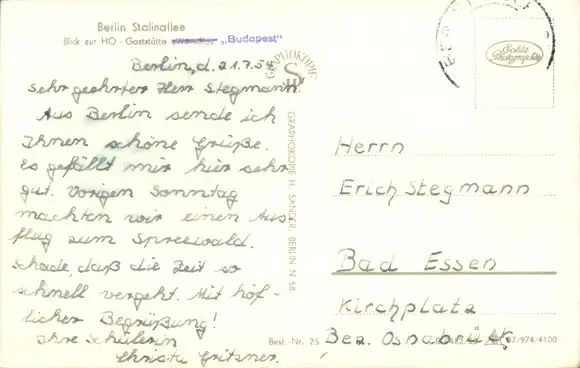 Berlin Stalinallee
Blick zur HO - Gaststätte „Budapest"
Berlin, d. 21.7.54
Sehr geehrter Herr Stegmann.
Aus Berlin sende ich
Ihnen schöne Grüße.
Es gefällt mir hier sehr
gut. Vorigen Sonntag
machten wir einen Aus-
flug zum Spreewald.
Schade, daß die Zeit so
schnell vergeht. Mit höf-
licher Begrüßung!
Ihre Schülerin
Christa Gritzner.
GRAPHOKOPIE
GRAPHOKOPIE H. SANDER, BERLIN N 58
Best.-Nr. 25
Echte
Photographie
Herrn
Erich Stegmann
Bad Essen
Kirchplatz
Bez. Osnabrück
67/974/4100